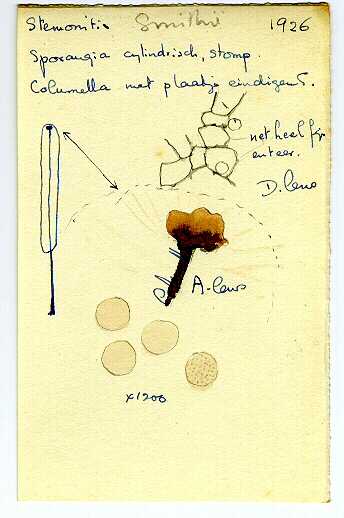 Stemonitis Smithii 1926
Sporangia cylindrisch, stomp.
Columella met plaatje eindigend.
net heel fijn
D. lens
A-lens
x1200